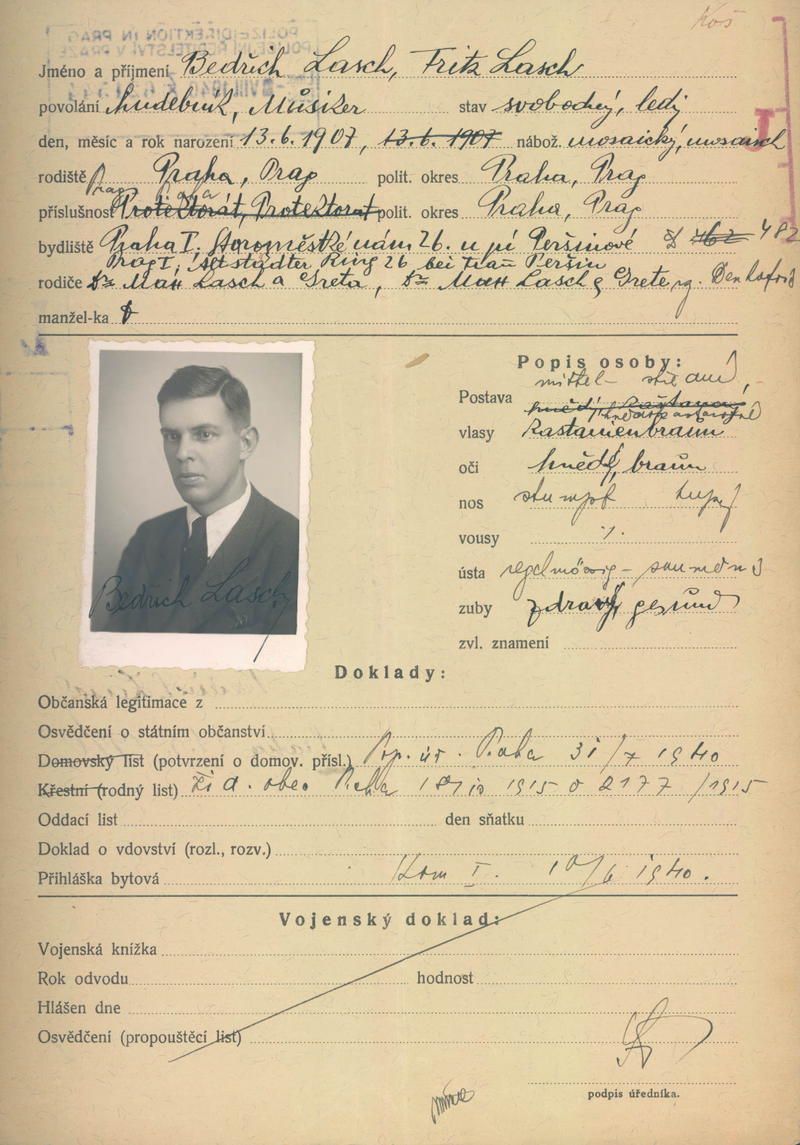 Koš
POLIZEIDIREKTION IN PRAG
POLICEJNÍ ŘEDITELSTVÍ V PRAZE
Jméno a příjmení Bedřich Lasch, Fritz Lasch
povolání hudebník, Músiker stav svobodný, ledig
den, měsíc a rok narození 13.6.1907, 13.6.1907 nábož. mosaický, mosaisch
J
rodiště Praha, Prag polit. okres Praha, Prag
Prag Praha
příslušnost Protektorát, Protektorat polit. okres Praha, Prag
bydliště Praha I. Staroměstské nám 26. u pí Peršinové 482
Prag I, Altstädter Ring 26 bei Frau Peršin
rodiče Dr Max Lasch a Greta, Dr Max Lasch & Grete
manžel-ka
Popis osoby:
Postava mittel-
hnědý, kaštanové
vlasy kastanienbraun
oči hnědé, braun
nos stumpf tupý
vousy
ústa regelmässig - souměrná
zuby zdravé, gesund
zvl. znamení
Bedřich Lasch
Doklady:
Občanská legitimace z
Osvědčení o státním občanství
Domovský list (potvrzení o domov. přísl.) Praha 31/7 1940
Křestní (rodný list) žid. obec Praha 1915 2177/1915
Oddací list den sňatku
Doklad o vdovství (rozl., rozv.)
Přihláška bytová Kom I. 10/6 1940.
Vojenský doklad:
Vojenská knížka
Rok odvodu hodnost
Hlášen dne
Osvědčení (propouštěcí list)
podpis úředníka.